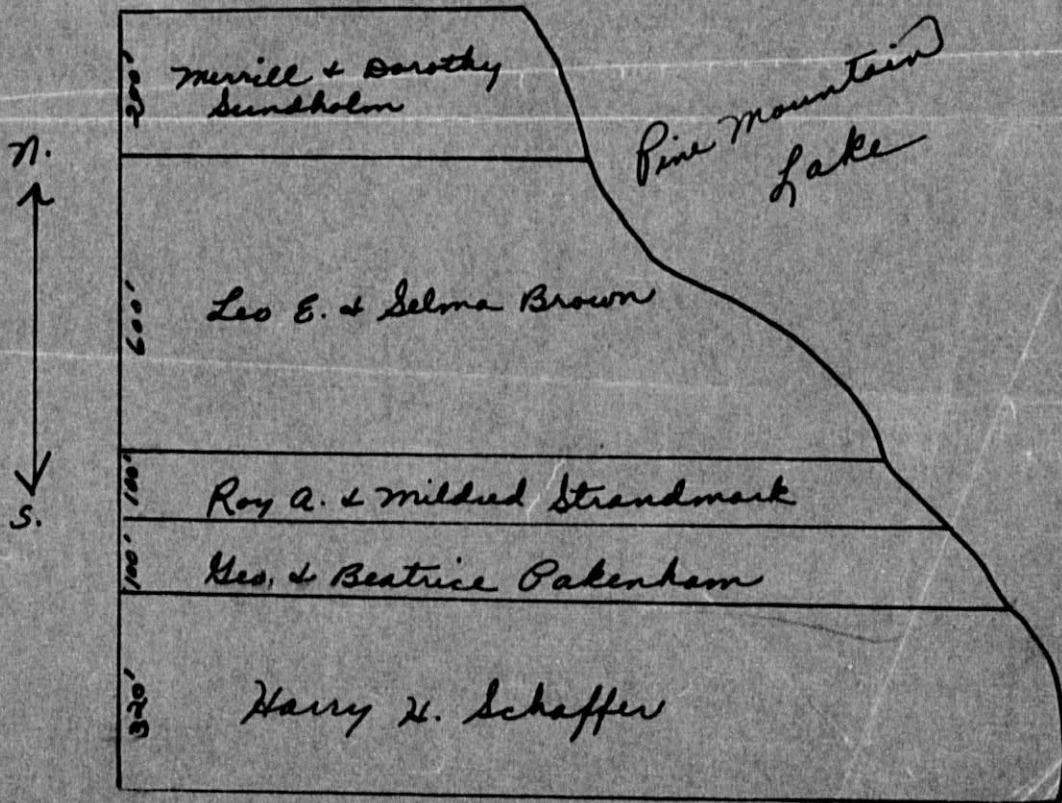 200'
Merrill & Dorothy
Sundholm
Pine Mountain
Lake
N.
S.
600'
Leo E. & Selma Brown
100'
Roy A. & Mildred Strandmark
100'
Geo. & Beatrice Pakenham
320'
Harry H. Schaffer